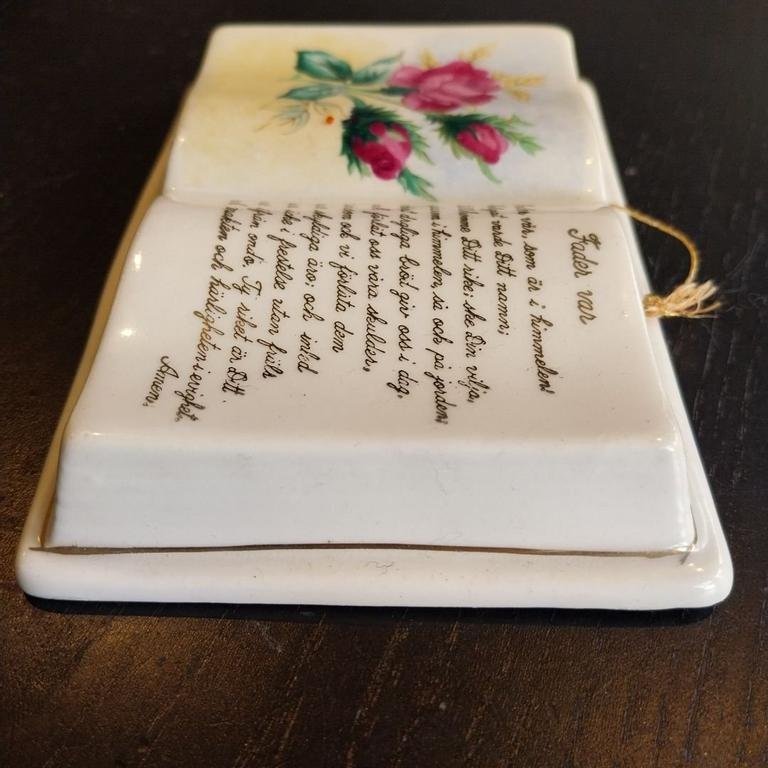 Fader vår
vår, som är i himmelen!
varde Ditt namn;
Ditt rike; ske Din vilja,
i himmelen, så ock på jorden;
dagliga bröd giv oss i dag,
förlåt oss våra skulder,
ock vi förlåta dem
skyldiga äro; och inled
i frestelse utan fräls
från ondo. Ty riket är Ditt.
makten och härligheten i evighet.
Amen.